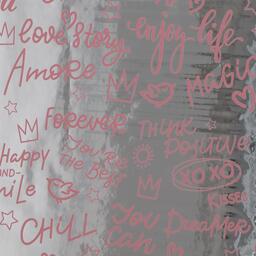 love Story
enjoy life
Amore
MAGIC
Forever
THINK
POSITIVE
Happy
AND
You Are
The Best
XOXO
Kisses
CHILL
You
Can
Dreamer